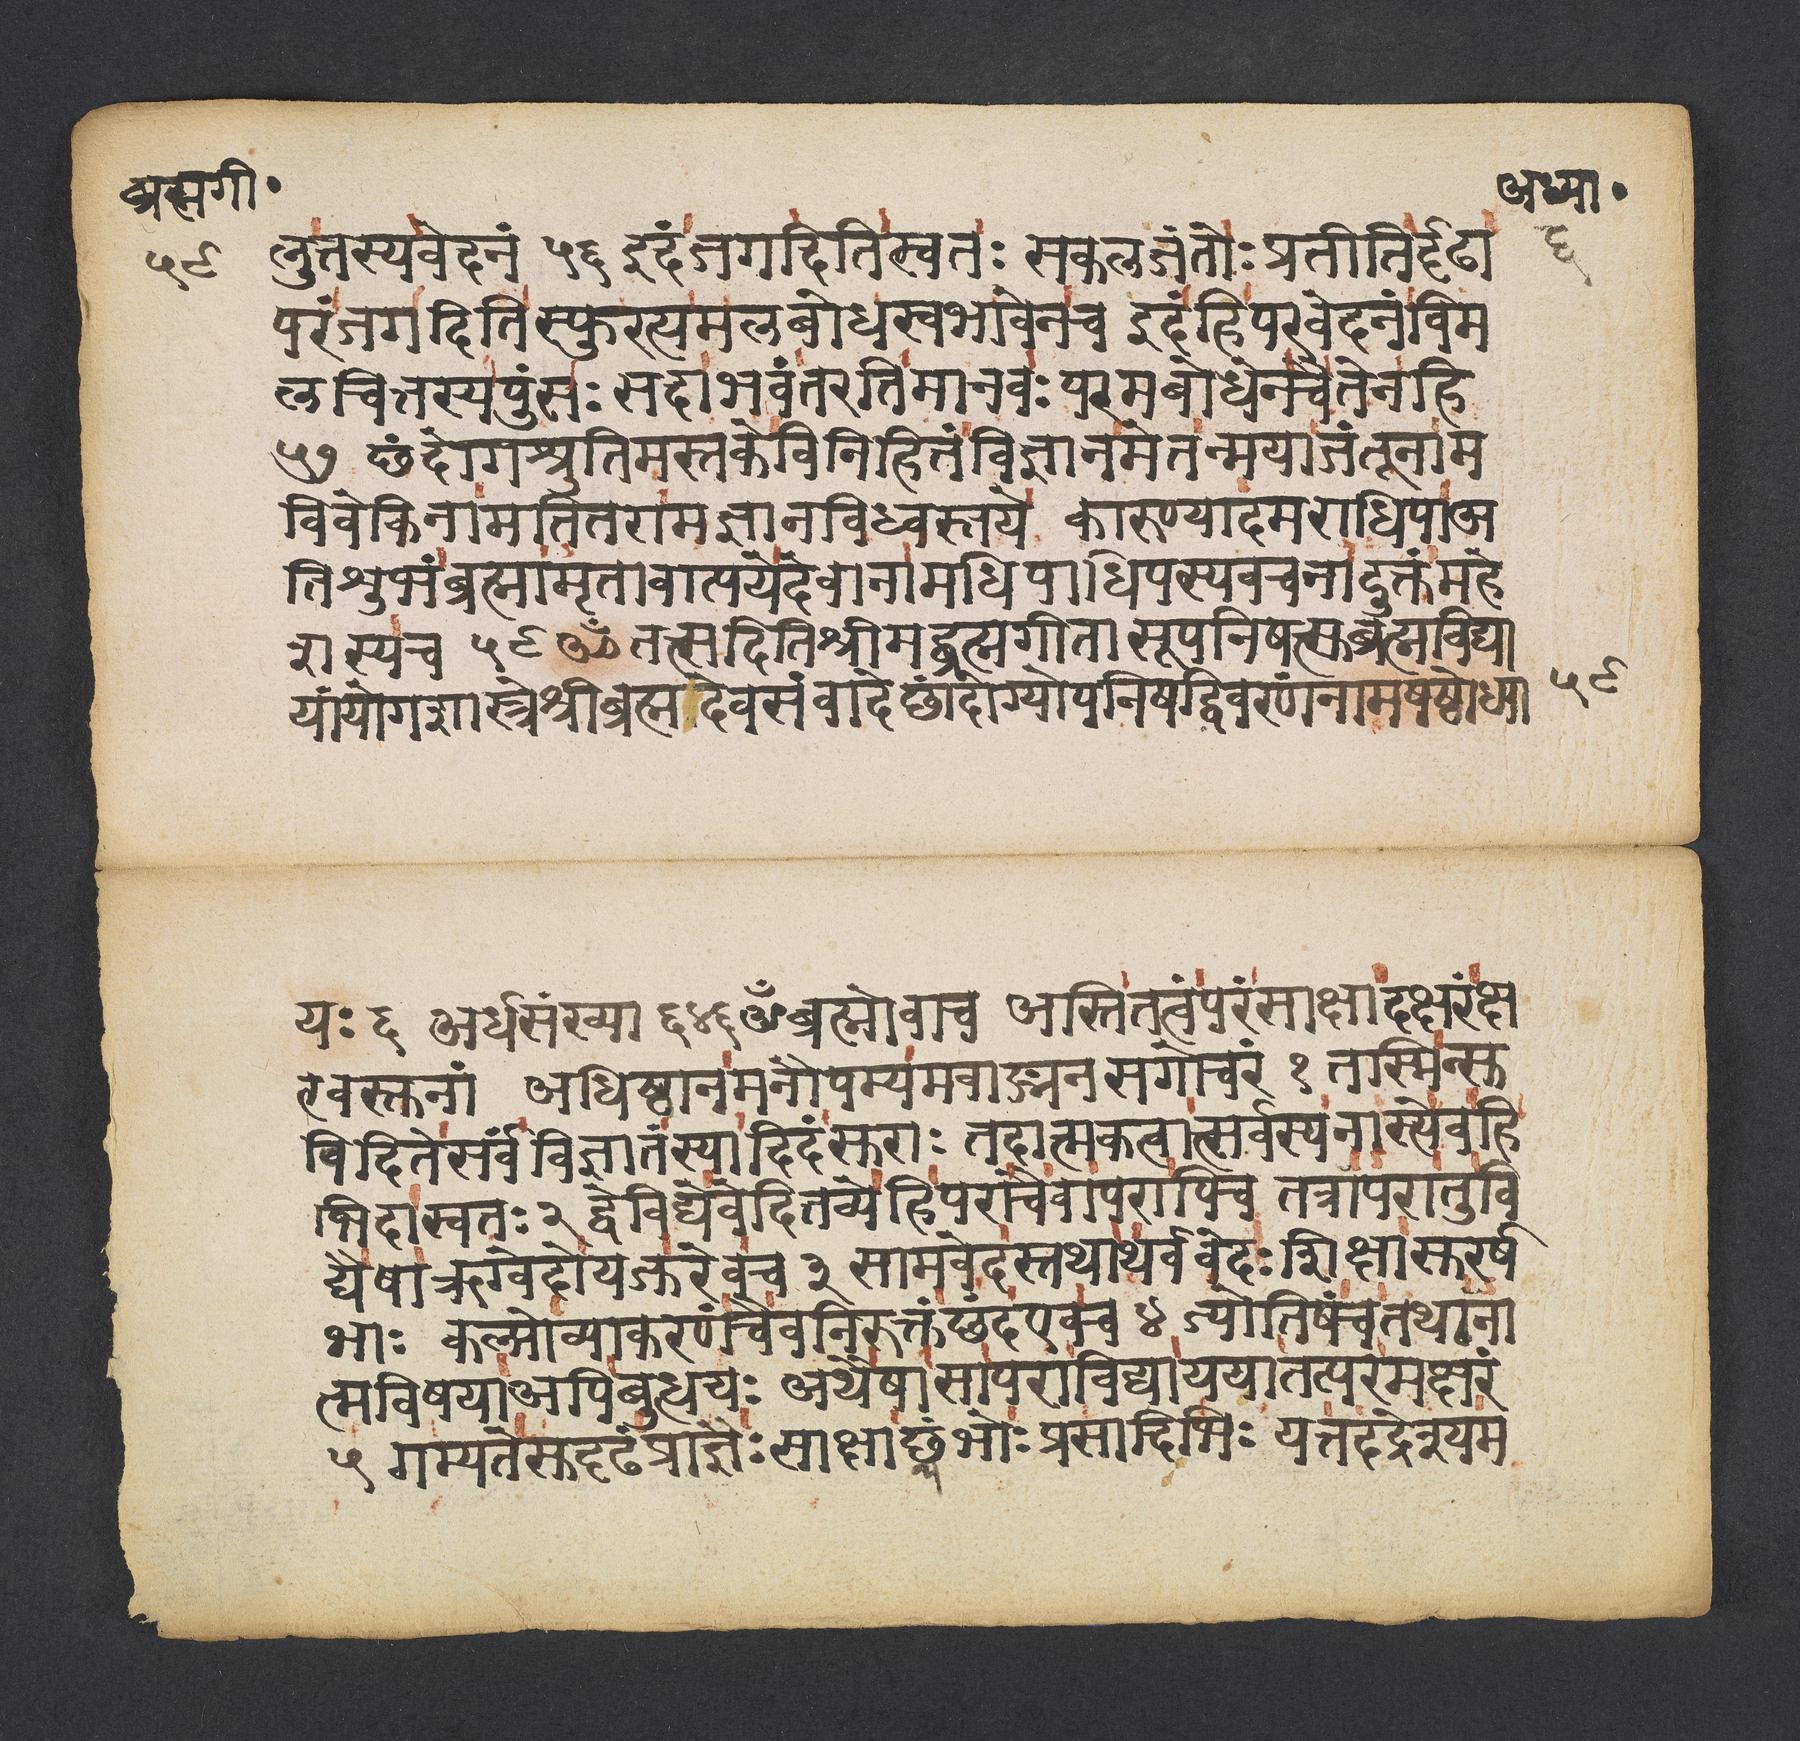 ब्रह्मगी॰
अध्या॰
५९
६
लुतस्यवेदनं ५६ इदंजगदितिस्वतः सकलजंतोः प्रतीतिर्दृढा
परंजगदितिस्फुरत्यमलबोधस्वभावेनच इदंहिपरवेदनंविम
लचित्तस्यपुंसः सदाभवंतरतिमानवः परमबोधेनचैतेनहि
५७ छंदोगश्रुतिमस्तकेविनिहितंविज्ञानमेतन्मयाजंतूनाम
विवेकिनामतितरामज्ञानविध्वस्तये कारुण्यादमराधिपाअ
तिशुभंब्रह्मामृतावाप्तयेदेवानामधिपाधिपस्यवचनादुक्तंमहे
शस्यच ५९ ॐतत्सदितिश्रीमद्ब्रह्मगीतासूपनिषत्सुब्रह्मविद्या
यांयोगशास्त्रेश्रीब्रह्मदेवसंवादेछांदोग्योपनिषद्विवरणंनामषष्ठोध्या
५९
यः ६ अर्धसंख्या ६४६ ॐब्रह्मोवाच अस्तितत्वंपरंसाक्षादक्षरंक्ष
रवस्तुनां अधिष्ठानमनौपम्यमवाङ्मनसगोचरं १ तस्मिन्सु
विदितेसर्वंविज्ञातंस्यादिदंसुराः तदात्मकत्वात्सर्वस्यनास्त्येवहि
भिदास्वतः २ द्वेविद्येवेदितव्येहिपराचैवापरापिच तत्रापरातुवि
द्यैषाऋग्वेदोयजुरेवच ३ सामवेदस्तथाथर्ववेदः शिक्षासुरर्ष
भाः कल्पोव्याकरणंचैवनिरुक्तंछंदएवच ४ ज्योतिषंचतथाना
त्मविषयाअपिबुधयः अथैषासापराविद्याययातत्परमक्षरं
५ गम्यतेसुदृढंप्राज्ञैः साक्षाछंभोः प्रसादिभिः यत्तदद्रेश्यम